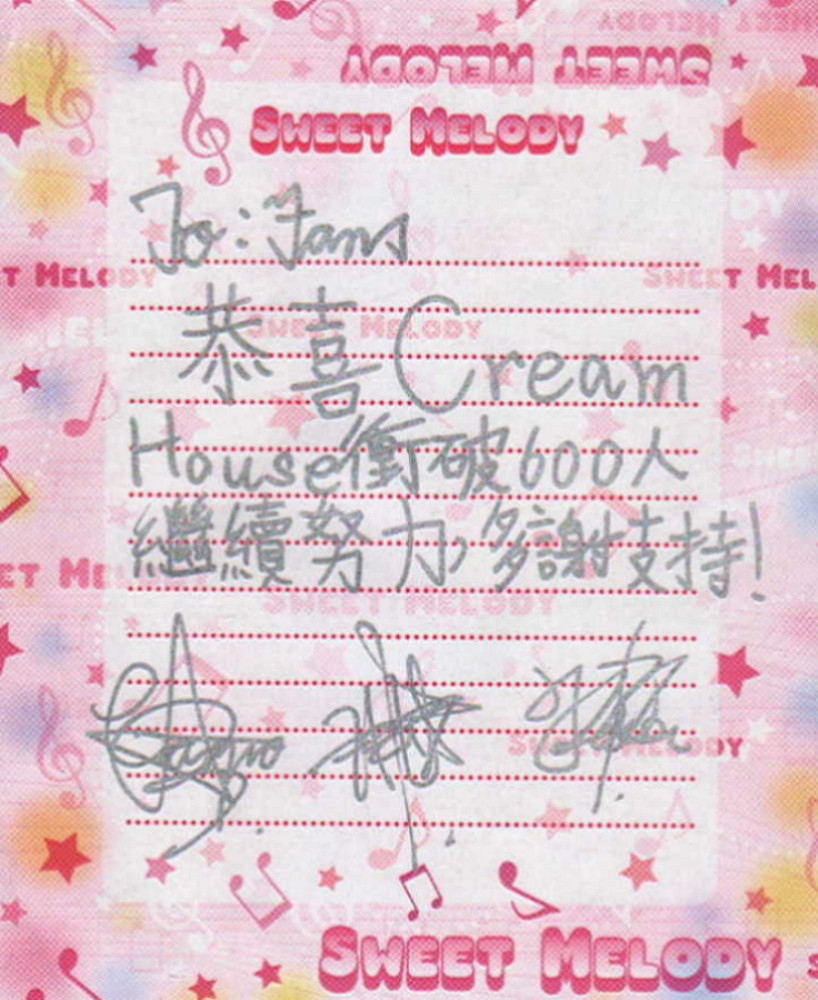 SWEET MELODY
SWEET MELODY
To: Fans
恭喜Cream
House衝破600人
繼續努力,多謝支持!
SWEET MELODY